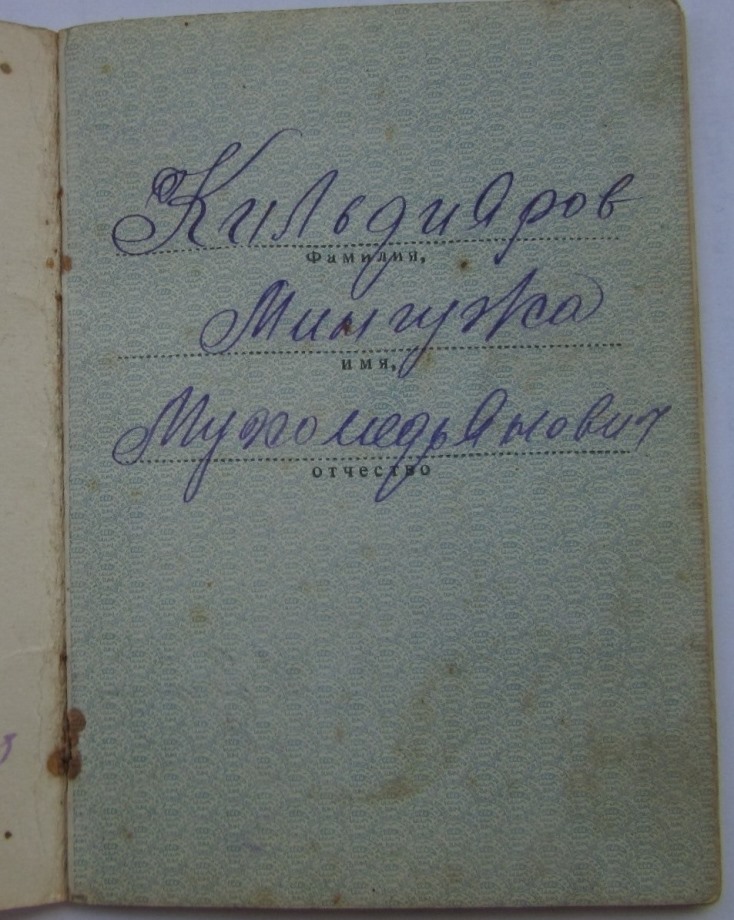 Кильдияров
Фамилия,
Мингужа
имя,
Мухомедьянович
отчество